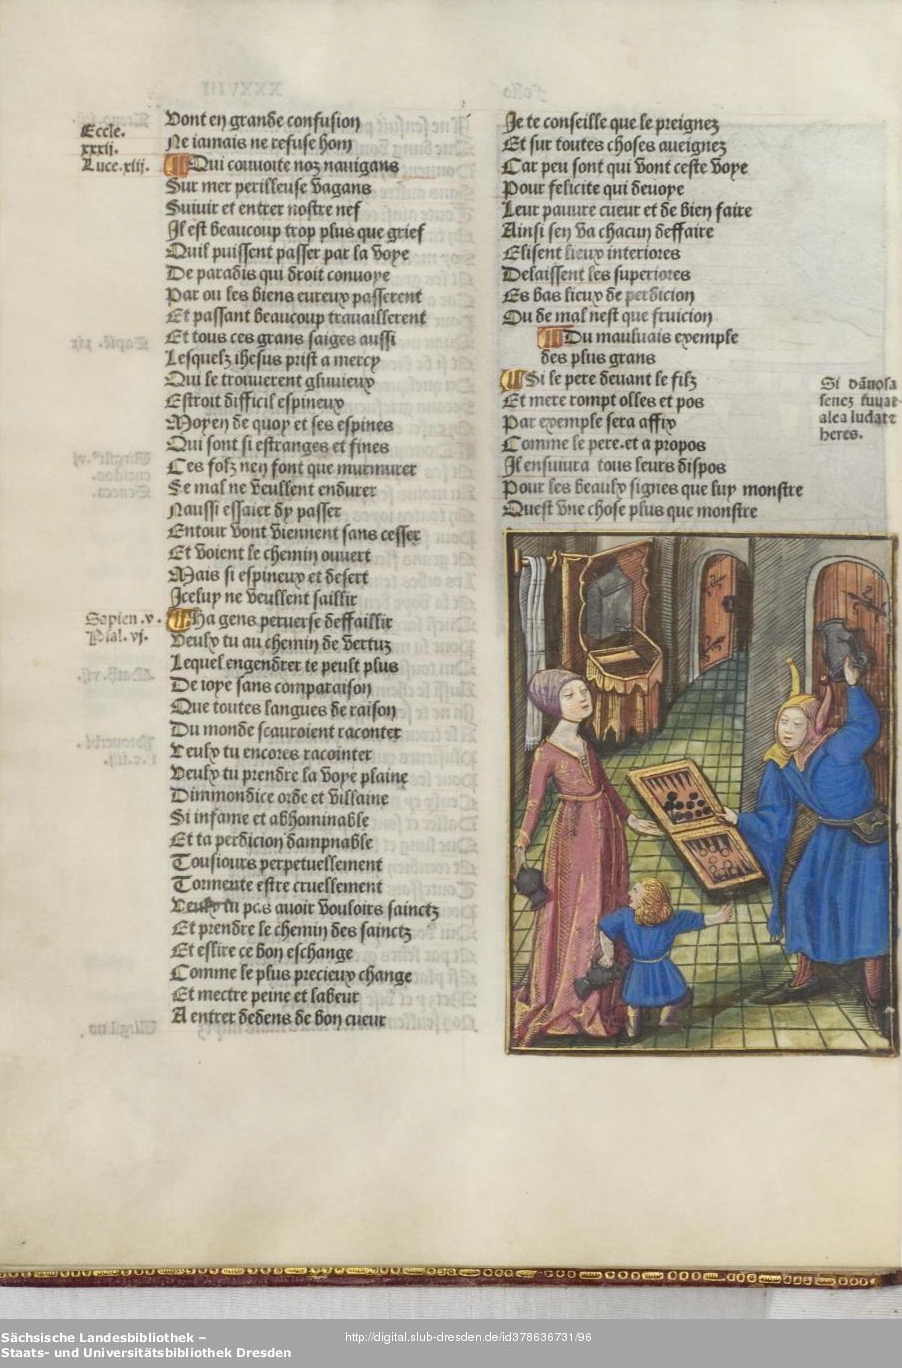 Eccle.
xxxij.
Luce.xiij.
Vont en grande confusion
Ne iamais ne refuse hom
Qui couuoite noz nauigans
Sur mer perilleuse vagans
Suiuir et entrer nostre nef
Il est beaucoup trop plus que grief
Quil puissent passer par la voye
De paradis qui droit conuoye
Par ou les biens eureux passerent
Et passant beaucoup trauaillerent
Et tous ces grans saiges aussi
Lesquelz ihesus prist a mercy
Qui le trouuerent gluuieux
Estroit difficil espineux
Moyen de quoy et ses espines
Qui sont si estranges et fines
Ces folz nen font que murmurer
Se mal ne veullent endurer
Naussi essaier dy passer
Entour vont viennent sans cesser
Et voient le chemin ouuert
Mais si espineux et desert
Iceluy ne veullent saillir
Sapien.v.
Psal.vj.
Ha gens peruerse deffaillir
Veulx tu au chemin de vertuz
Lequel engendrer te peult plus
De ioye sans comparaison
Que toutes langues de raison
Du monde scauroient raconter
Veulx tu encores racointer
Veulx tu prendre la voye plaine
Dimmondice orde et villaine
Si infame et abhominable
Et ta perdicion dampnable
Tousiours perpetuellement
Tormente estre cruellement
Veulx tu pas auoir vouloirs sainctz
Et prendre le chemin des sainctz
Et eslire ce bon eschange
Comme le plus precieux change
Et mectre peine et labeur
A entrer dedens de bon cueur
Je te conseille que le preignez
Et sur toutes choses aueignez
Car peu sont qui vont ceste voye
Pour felicite qui deuoye
Leur pauure cueur et de bien faire
Ainsi sen va chacun deffaire
Elisent lieux interiores
Delaissent les superiores
Es bas lieux de perdicion
Ou de mal nest que fruicion
Du mauluais exemple
des plus grans
Si le pere deuant le filz
Et mere rompt olles et pos
Par exemple sera affix
Comme le pere.et a propos
Il ensuiura tous leurs dispos
Pour les beaulx signes que luy monstre
Quest vne chose plus que monstre
Si dānosa
senez iuuat
alea ludat et
heres.
Sächsische Landesbibliothek –
Staats- und Universitätsbibliothek Dresden
http://digital.slub-dresden.de/id378636731/96